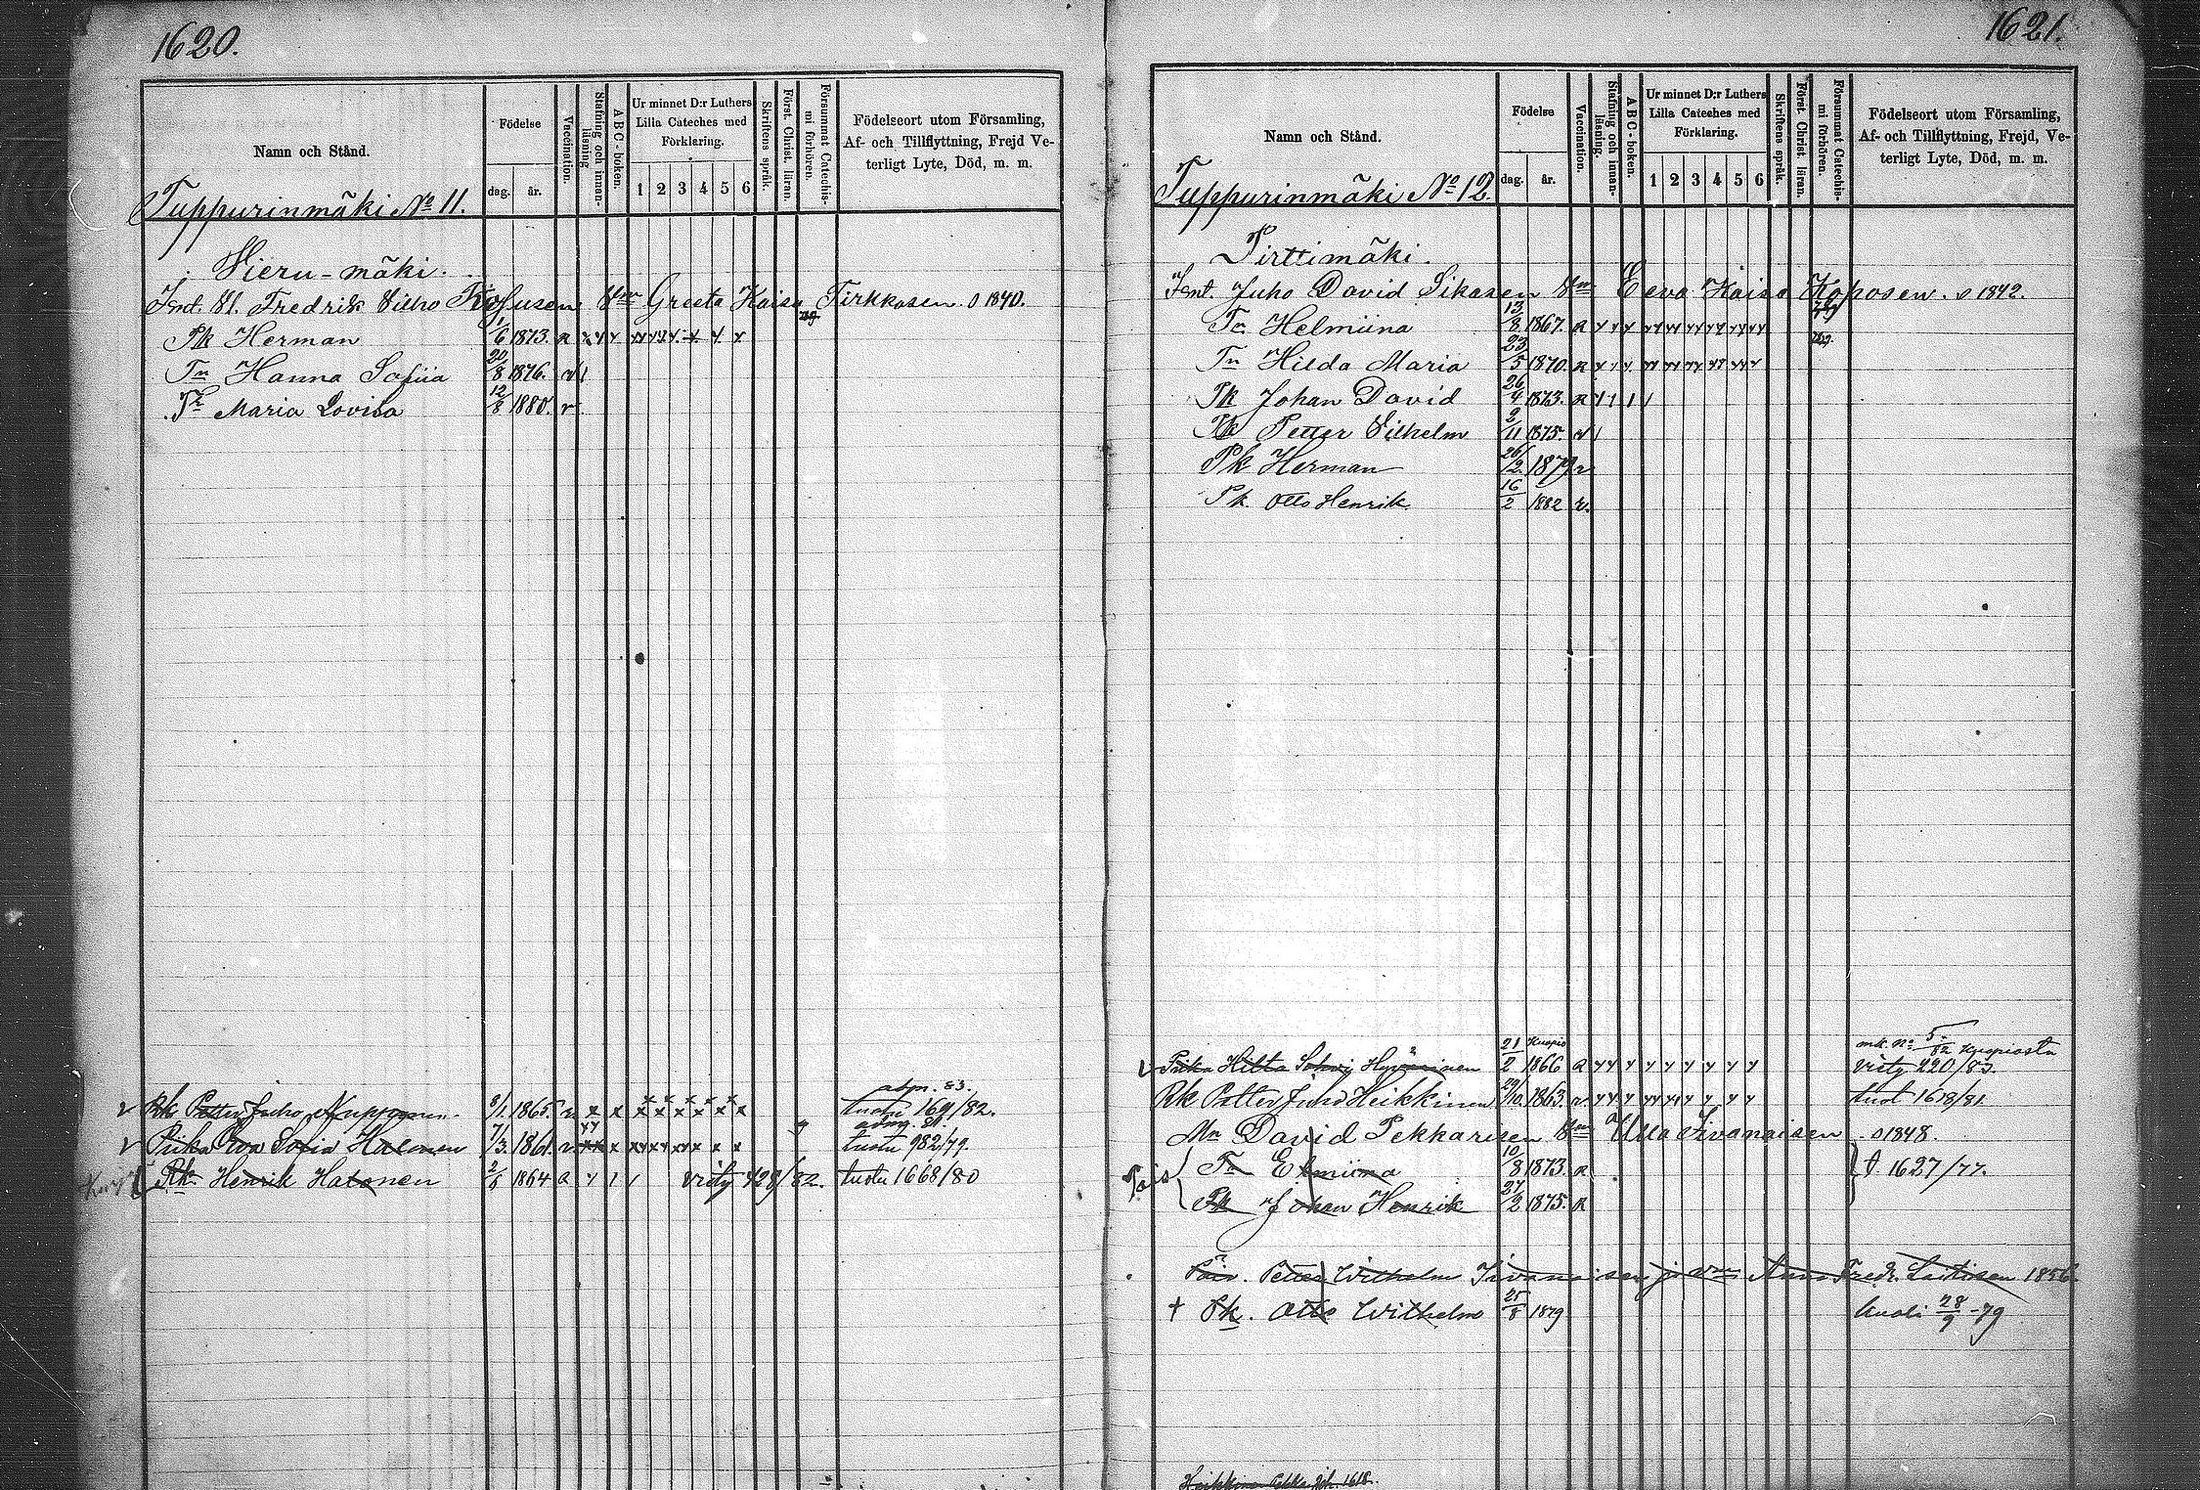 1620.
Namn och Stånd.
Födelse
dag.
år.
Vaccination.
Stafning och innan-
läsning
ABC-boken.
Ur minnet D:r Luthers
Lilla Cateches med
Förklaring.
1 2 3 4 5 6
Skriftens språk.
Först. Christ. läran.
Försummat Catechis-
mi förhören.
Födelseort utom Församling,
Af- och Tillflyttning, Frejd Ve-
terligt Lyte, Död, m. m.
Tuppurinmäki No 11.
Vieru-mäki.
Fredrik Vilho Greeta Kaisa Tirkkosen. s 1840.
Pk Herman 1/6 1873. R
Tr Hanna Sofiia 20/8 1876.
Tr Maria Lovisa 12/8 1880. v
adm. 83.
v Rk Petter Juho Nupponen. 8/1 1865. v tuotu 169/82.
adm. 81.
v Piika Eva Sofia Halonen 7/3 1861. v tuotu 982/79.
Rk. Henrik Halonen 2/5 1864 R vrity 428/82. tuotu 1668/80
1621.
Namn och Stånd.
Födelse
dag.
år.
Vaccination.
Stafning och innan-
läsning.
ABC-boken.
Ur minnet D:r Luthers
Lilla Cateches med
Förklaring.
1 2 3 4 5 6
Skriftens språk.
Först. Christ. läran.
Försummat Catechis-
mi förhören.
Födelseort utom Församling,
Af- och Tillflyttning, Frejd, Ve-
terligt Lyte, Död, m. m.
Tuppurinmäki No 12.
Pirttimäki.
Juho David Sikasen Vmo Eeva Kaisa Koposen. s 1842.
Tr Helmiina 13/8 1867. R
Tr Hilda Maria 23/5 1870. R
Pk Johan David 26/4 1873. R
Pk Petter Vilhelm 2/11 1875.
Pk Herman 26/12 1879 v
Pk. Otto Henrik 16/2 1882 v.
Kuopio mk. No 5/82 Kuopiosta
v Piika Hilta 21/2 1866 R vrity 220/83.
Rk Petter Juho Heikkinen 29/10 1863. v. tuot 1618/81
Mn David Pekkarisen Vmo Ulla Iivanaisen s 1848.
Pois Tr Elmiina 10/8 1873. R t. 1627/77.
Pk Johan Henrik 27/2 1875. R
Petter Wilhelm Iivanaisen ja vmo Anna Fredr. Laitisen 1856
† Pk. Otto Wilhelm 25/8 1879 kuoli 28/9 -79
Heikkinen Pekka Joh. 1618.